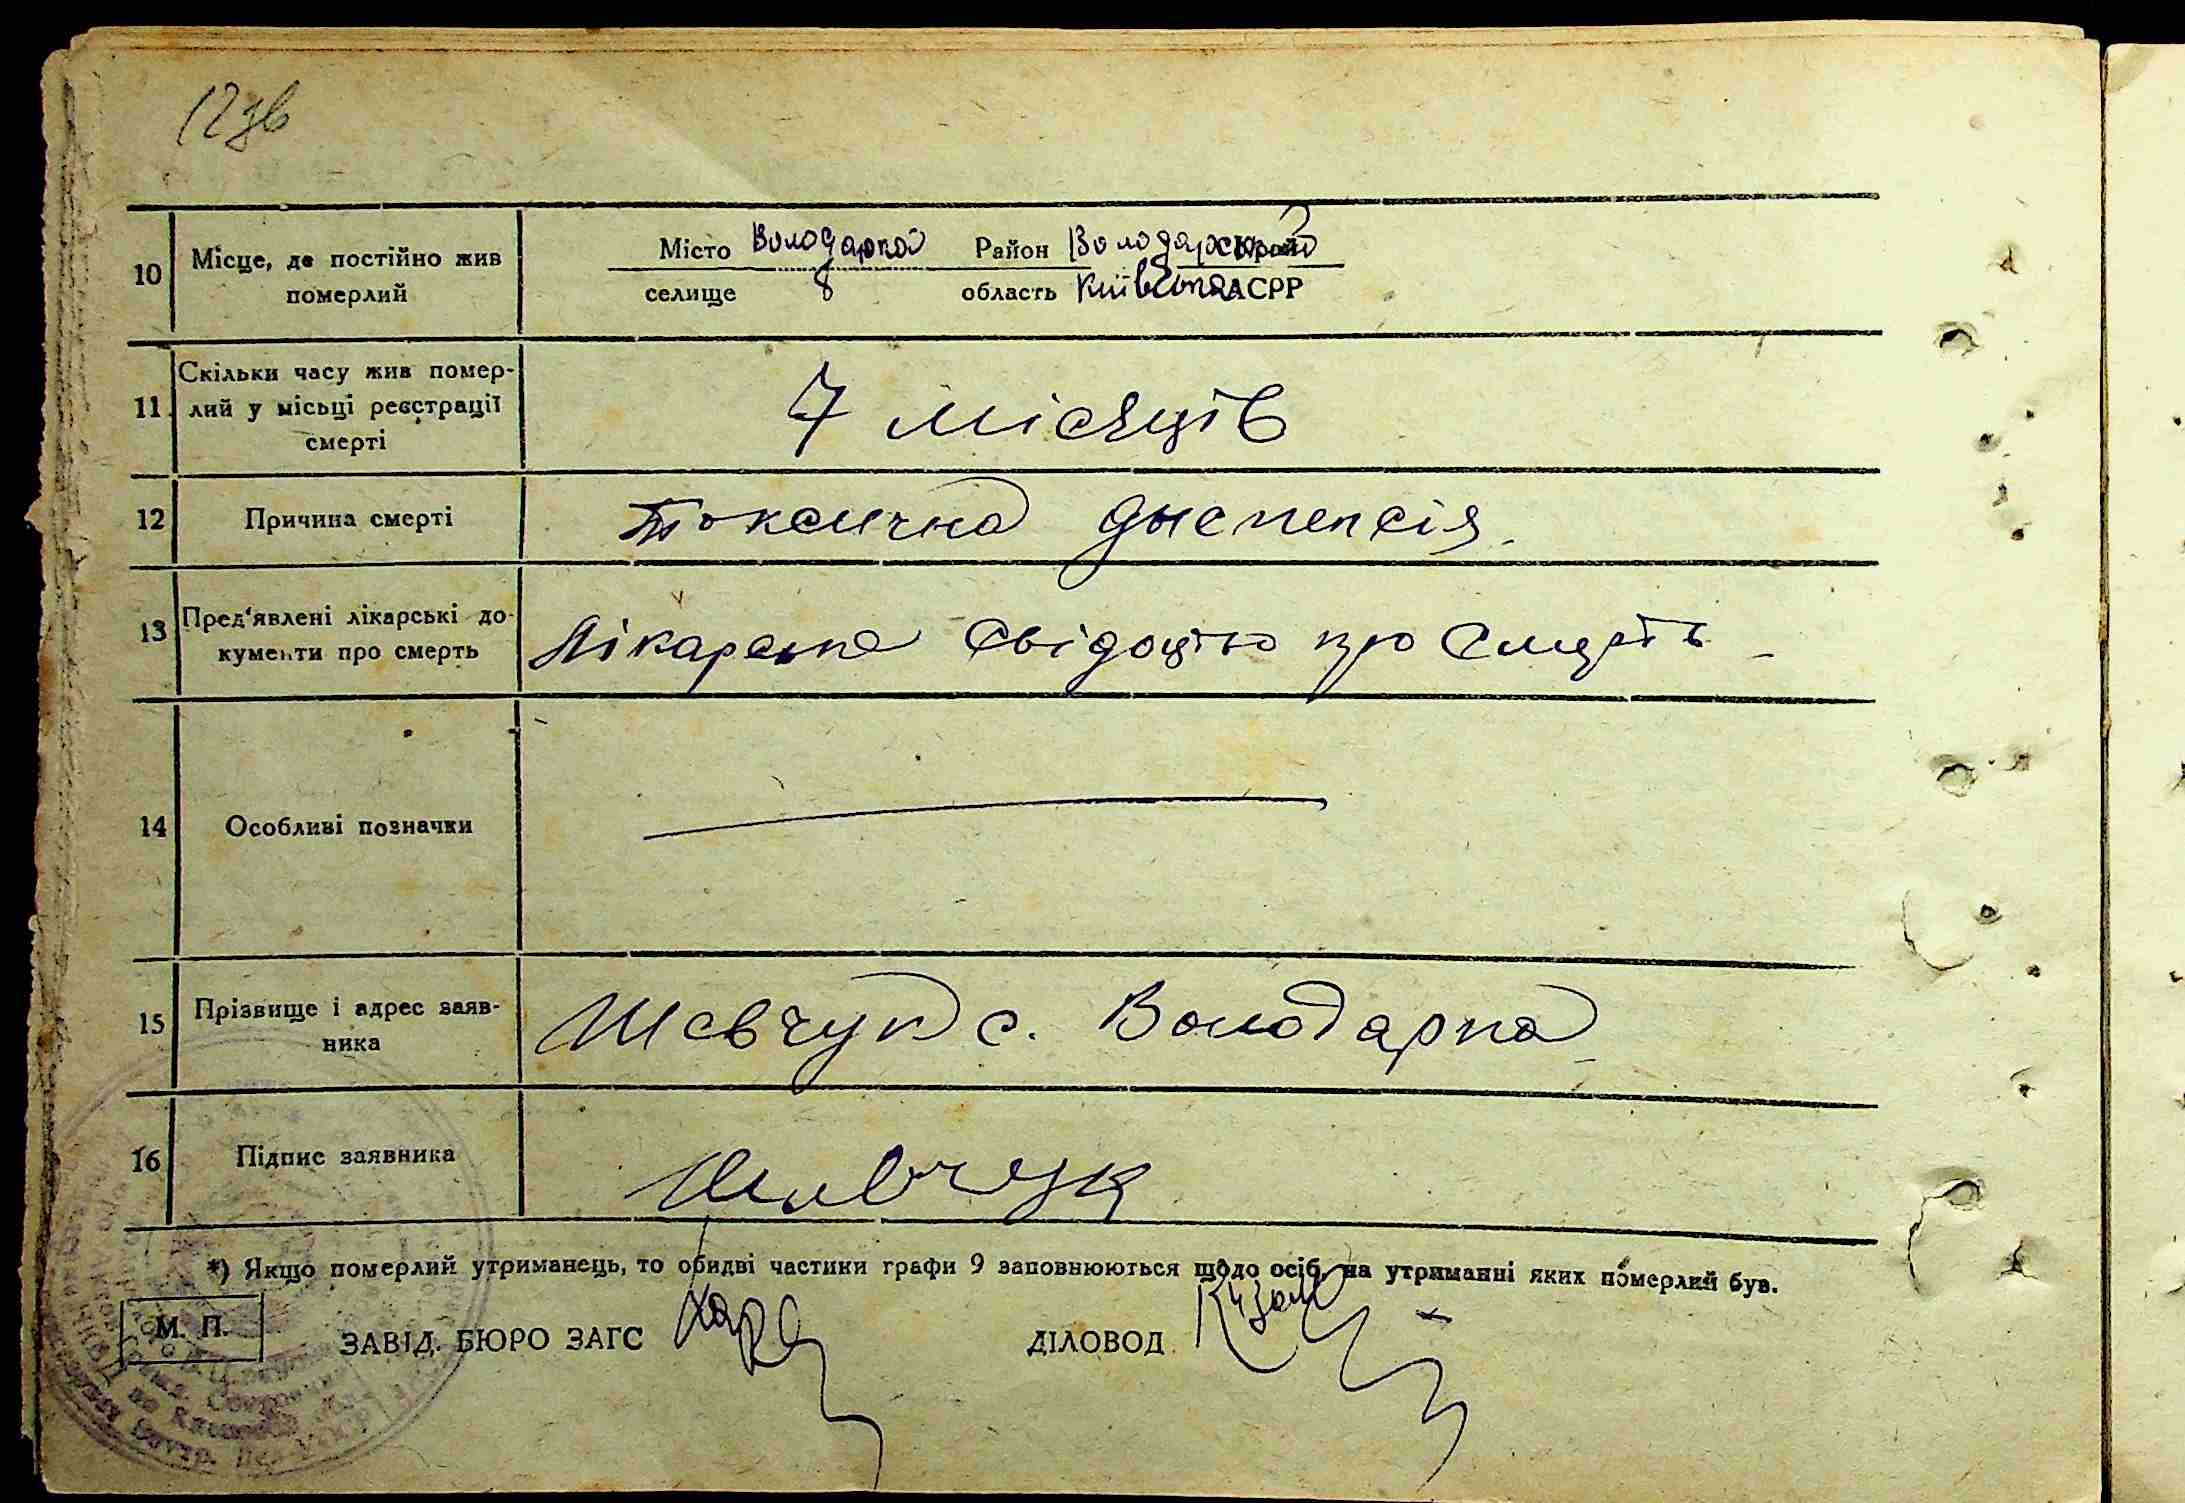 12зв
10 Місце, де постійно жив померлий
Місто Володарка Район Володарский
селище область Київська АСРР
11. Скільки часу жив помер-
лий у місьці реєстрації
смерті
7 місяців
12 Причина смерті
Токсична диспепсія.
13 Пред'явлені лікарські до-
кументи про смерть
Лікарське свідоцтво про смерть
14 Особливі позначки
15 Прізвище і адрес заяв-
ника
Шевчук с. Володарка
16 Підпис заявника
Шевчук
*) Якщо померлий утриманець, то обидві частини графи 9 заповнюються щодо осіб, на утриманні яких померлий був.
М. П.
ЗАВІД. БЮРО ЗАГС
ДІЛОВОД